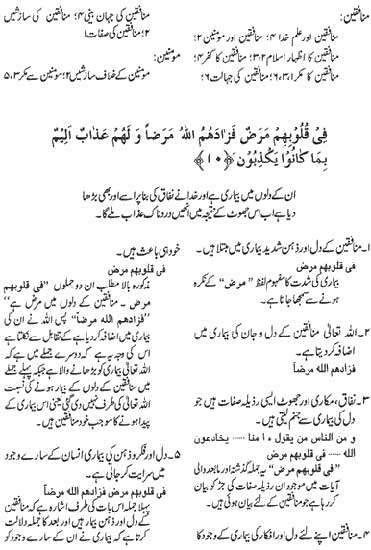 منافقین:
منافقین اور علم خدا ۴؛ منافقین اور مومنین ۲؛
منافقین کا اظہار اسلام ۲،۳؛ منافقین کا کفر ۴؛
منافقین کا مکر ۱،۳،۶؛ منافقین کی جہالت ۶؛
منافقین کی جہان بینی ۴؛ منافقین کی سازشیں
۲؛ منافقین کی صفات ۱
مومنین:
مومنین کے خلاف سازشیں ۲؛ مومنین سے مکر ۳،۵
فِی قُلُوبِهِم مَرَضٌ فَزَادَهُمُ اللهُ مَرَضاً وَ لَهُم عَذَابٌ اَلِیمٌ
بِمَا کَانُوا یَکذِبُونَ ﴿۱۰﴾
ان کے دلوں میں بیماری ہے اور خدا نے نفاق کی بنا پر اسے اور بھی بڑھا
دیا ہے اب اس جھوٹ کے نتیجہ میں انھیں دردناک عذاب ملے گا۔
۱۔ منافقین کے دل اور ذہن شدید بیماری میں مبتلا ہیں۔
فی قلوبهم مرض
بیماری کی شدت کا مفہوم لفظ ”مرض“ کے نکرہ
ہونے سے سمجھا جاتا ہے۔
۲۔ اللہ تعالیٰ منافقین کے دل و جان کی بیماری میں
اضافہ کر دیتا ہے۔
فزادهم الله مرضاً
۳۔ نفاق، مکاری اور جھوٹ ایسی رذیلہ صفات ہیں جو
دل کی بیماری سے جنم لیتی ہیں۔
و من الناس من یقول ء امنا ..... یخادعون
الله ..... فی قلوبهم مرض
”فی قلوبهم مرض“ یہ جملہ گذشتہ اور مابعد والی
آیات میں موجود ان رذیلہ صفات کی جڑ کو بیان
کر رہا ہے جو منافقین کے لئے بیان ہوئی ہیں۔
۴۔ منافقین اپنے لئے دل اور افکار کی بیماری کے وجود کا
خود ہی باعث ہیں۔
فی قلوبهم مرض
مذکورہ بالا مطلب ان دو جملوں ”فی قلوبهم
مرض ۔ منافقین کے دلوں میں مرض ہے“
”فزادهم الله مرضاً“ پس اللہ نے ان کی
بیماری میں اضافہ کر دیا ہے کے تقابل سے نکلتا ہے
اس کی وجہ یہ ہے کہ دوسرے جملے میں ہے کہ
اللہ تعالیٰ بیماری کو بڑھانے والا ہے جبکہ پہلے جملے
میں منافقین کے دلوں کے بیمار ہونے کی نسبت
اللہ تعالیٰ کی طرف نہیں دی گئی یعنی اس بیماری کے
پیدا ہونے کا سبب خود منافقین ہیں۔
۵۔ دل اور فکر و ذہن کی بیماری انسان کے سارے وجود
میں سرایت کر جاتی ہے۔
فی قلوبهم مرض فزادهم الله مرضاً
پہلا جملہ اس بات کی طرف اشارہ ہے کہ منافقین
کے دل اور ذہن بیمار ہیں اور بعد کا جملہ دلالت
کرتا ہے کہ بیماری نے ان کے سارے وجود کو